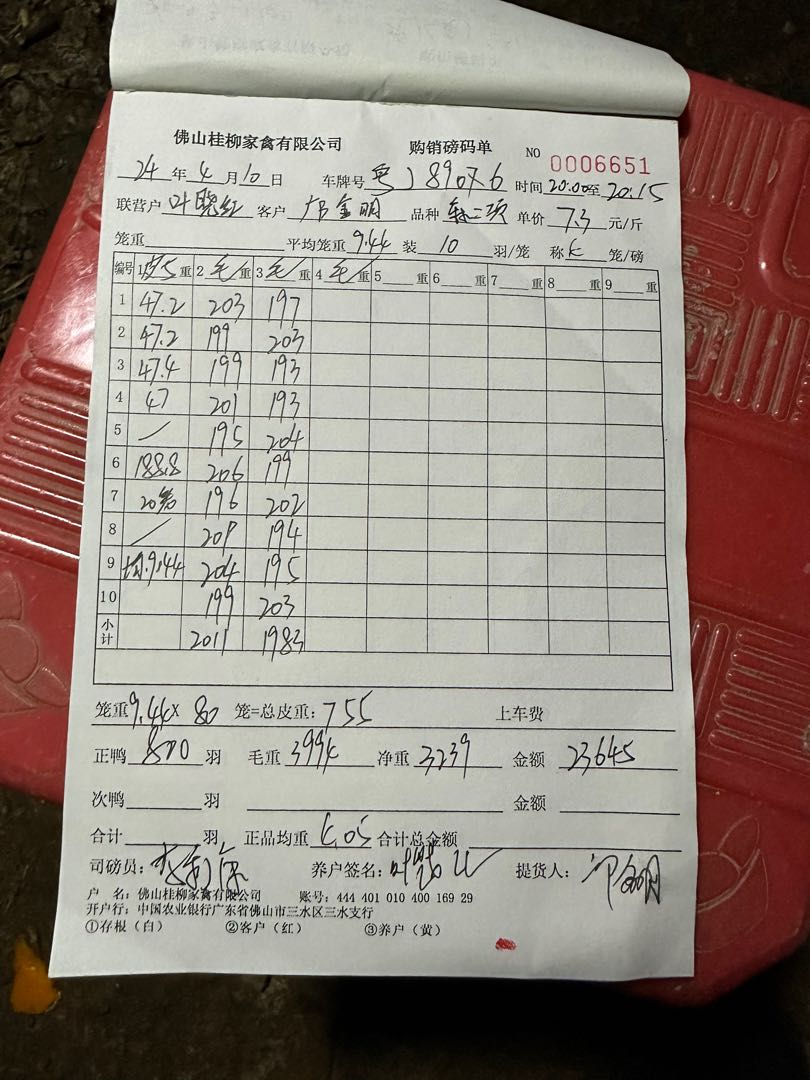 佛山桂柳家禽有限公司 购销磅码单 NO 0006651
24 年 4 月 10 日 车牌号 粤J890X6 时间 20:00至20:15
联营户 叶晓红 客户 邝金明 品种 单价 7.3 元/斤
笼重 平均笼重 9.44 装 10 羽/笼 称 4 笼/磅
编号 1 皮5 重 2 毛 重 3 毛 重 4 毛 重 5 重 6 重 7 重 8 重 9 重
1 47.2 203 197
2 47.2 199 203
3 47.4 199 193
4 47 201 193
5 / 195 204
6 188.8 206 199
7 20笼 196 202
8 / 209 194
9 均.9.44 204 195
10 199 203
小计 2011 1983
笼重 9.44 X 80 笼=总皮重: 755 上车费
正鸭 800 羽 毛重 3994 净重 3239 金额 23645
次鸭 羽 金额
合计 羽 正品均重 4.05 合计总金额
司磅员: 养户签名: 提货人:
户 名: 佛山桂柳家禽有限公司 账号: 444 401 010 400 169 29
开户行: 中国农业银行广东省佛山市三水区三水支行
①存根（白） ②客户（红） ③养户（黄）